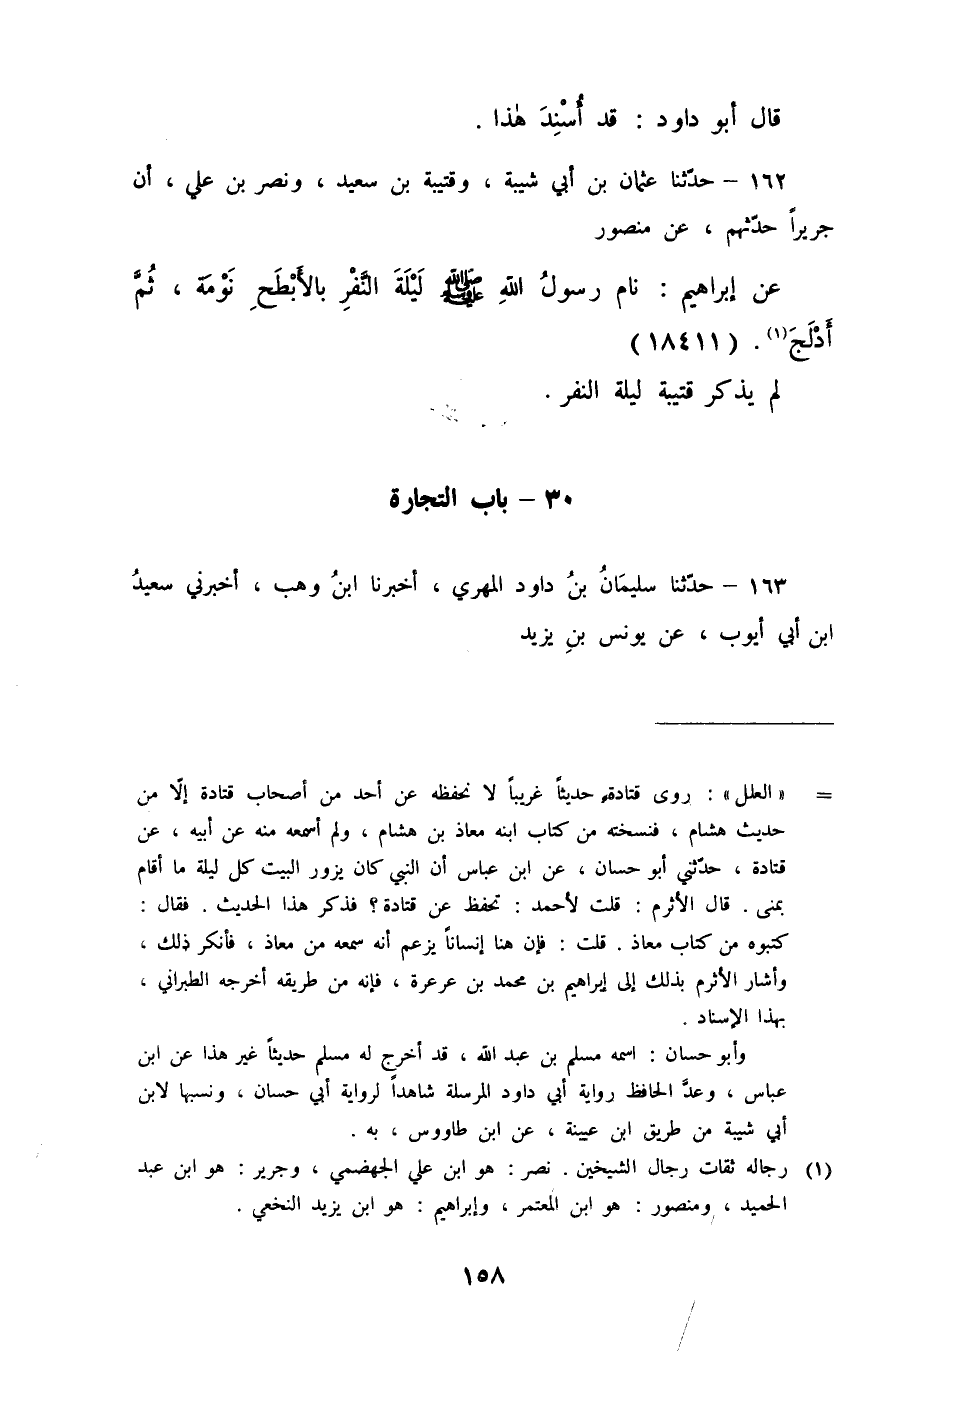 قال أبو داود : قد أُسْنِدَ هٰذا .
١٦٢ – حدّثنا عثمان بن أبي شيبة ، وقتيبة بن سعيد ، ونصر بن علي ، أن
جريراً حدّثهم ، عن منصور
عن إبراهيم : نام رسولُ اللهِ ﷺ لَيْلَةَ النَّفْرِ بالأَبْطَحِ نَوْمَة ، ثُمَّ
أَدْلَجَ(١) . (١٨٤١١)
لم يذكر قتيبة ليلة النفر .
٣٠ – باب التجارة
١٦٣ – حدّثنا سليمَانُ بنُ داود المهري ، أخبرنا ابنُ وهب ، أخبرني سعيدُ
ابن أبي أيوب ، عن يونس بنِ يزيد
= «العلل» : روى قتادة، حديثاً غريباً لا نحفظه عن أحد من أصحاب قتادة إلّا من
حديث هشام ، فنسخته من كتاب ابنه معاذ بن هشام ، ولم أسمعه منه عن أبيه ، عن
قتادة ، حدّثني أبو حسان ، عن ابن عباس أن النبي كان يزور البيت كل ليلة ما أقام
بمنى . قال الأثرم : قلت لأحمد : تحفظ عن قتادة؟ فذكر هذا الحديث . فقال :
كتبوه من كتاب معاذ . قلت : فإن هنا إنساناً يزعم أنه سمعه من معاذ ، فأنكر ذلك ،
وأشار الأثرم بذلك إلى إبراهيم بن محمد بن عرعرة ، فإنه من طريقه أخرجه الطبراني ،
بهذا الإسناد .
وأبو حسان : اسمه مسلم بن عبد الله ، قد أخرج له مسلم حديثاً غير هذا عن ابن
عباس ، وعدَّ الحافظ رواية أبي داود المرسلة شاهداً لرواية أبي حسان ، ونسبها لابن
أبي شيبة من طريق ابن عيينة ، عن ابن طاووس ، به .
(١) رجاله ثقات رجال الشيخين . نصر : هو ابن علي الجهضمي ، وجرير : هو ابن عبد
الحميد ، ومنصور : هو ابن المعتمر ، وإبراهيم : هو ابن يزيد النخعي .
١٥٨